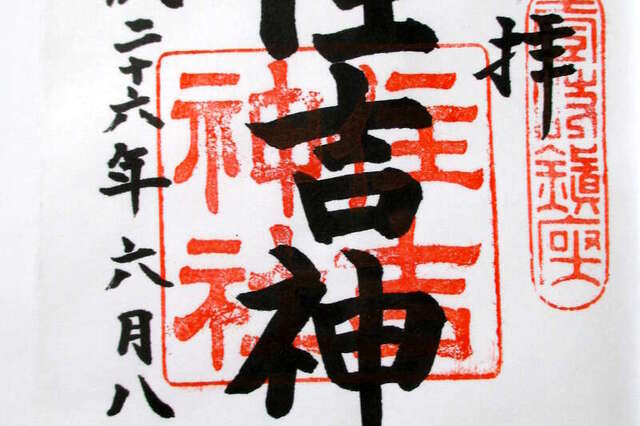 鎮座
拝
住吉神
住吉
神社
成二十六年六月八